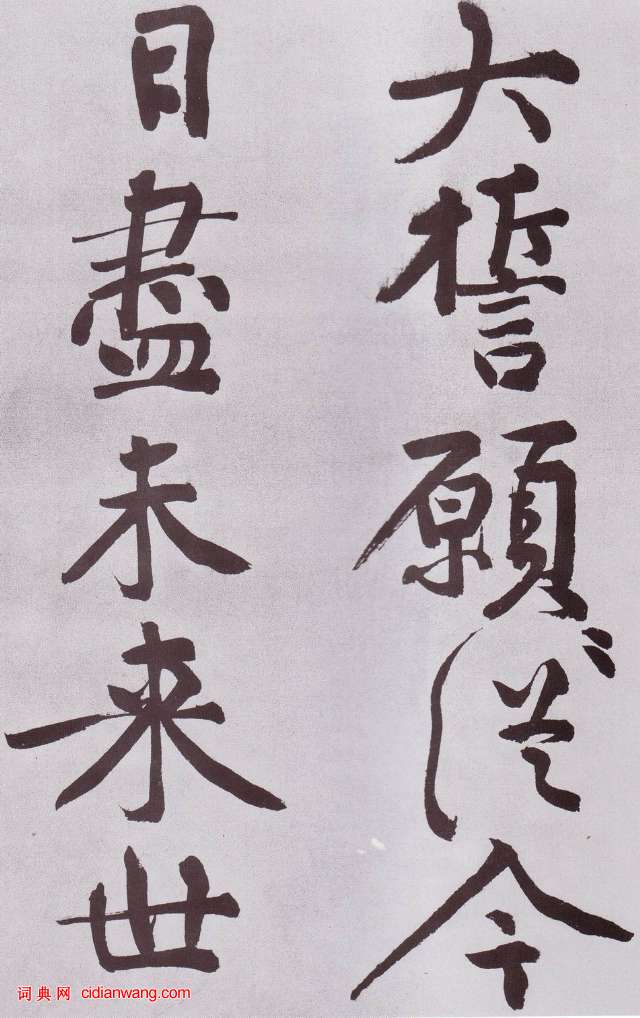 大誓願從今
日盡未来世
词典网 cidianwang.com